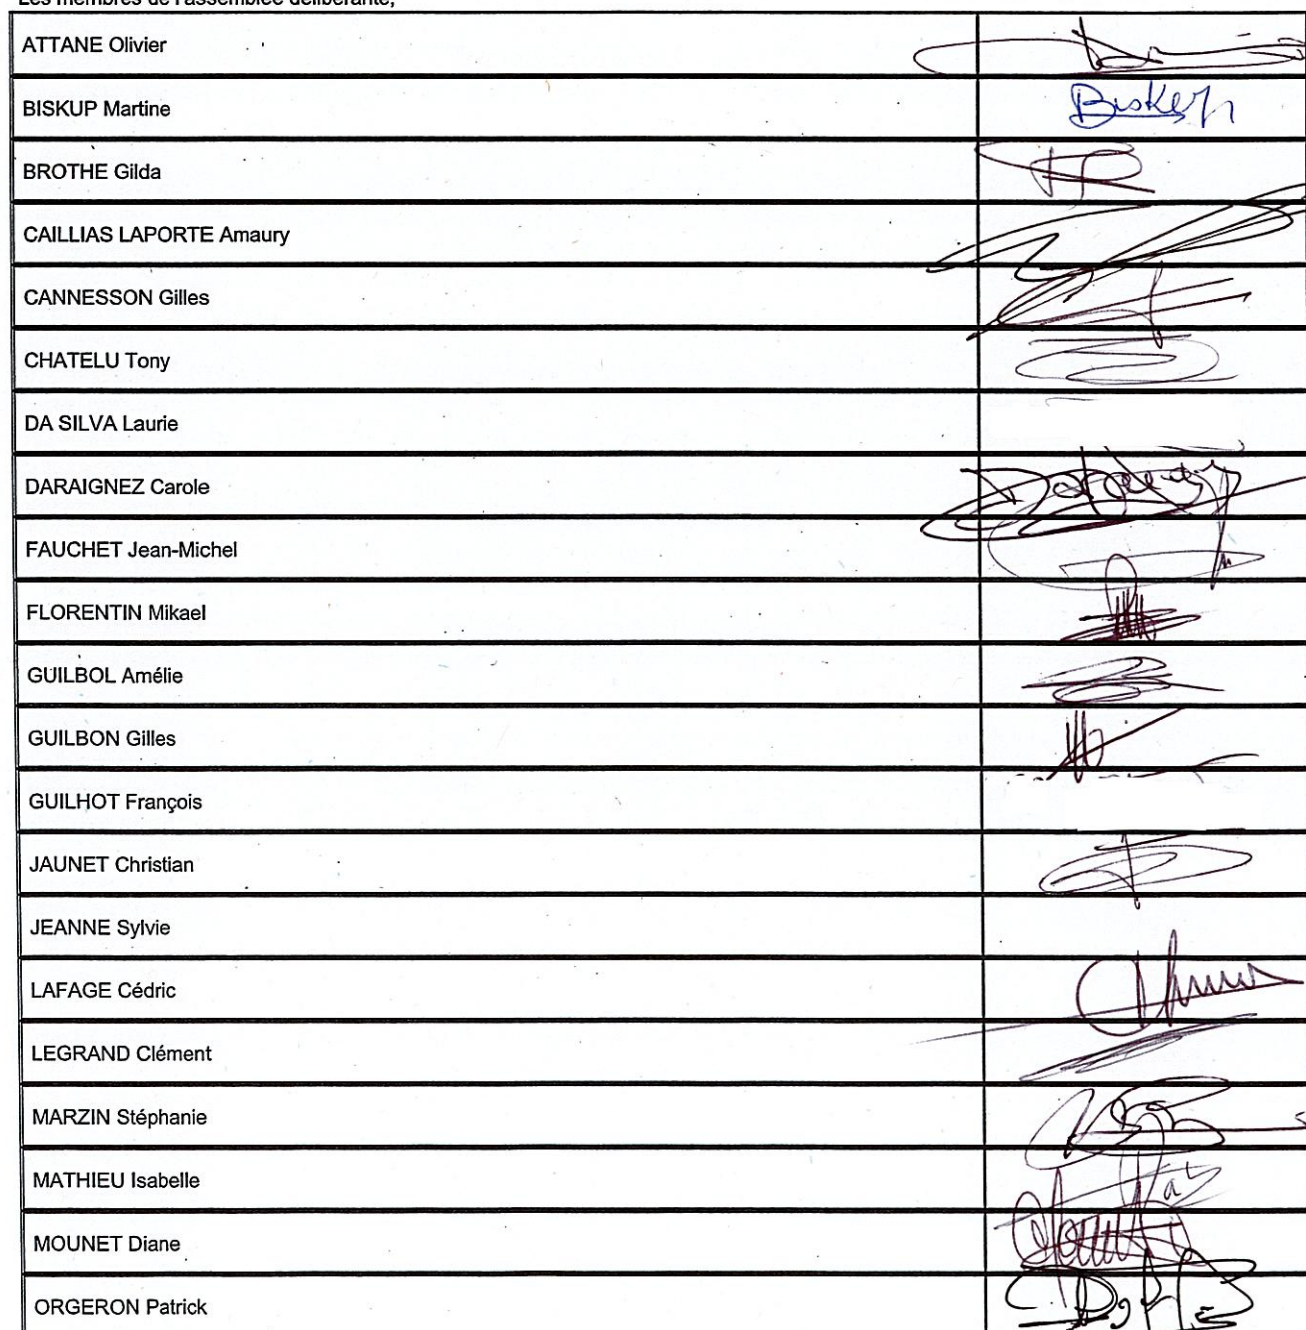 Les membres de l'assemblée délibérante,
ATTANE Olivier
BISKUP Martine
Biskup
BROTHE Gilda
CAILLIAS LAPORTE Amaury
CANNESSON Gilles
CHATELU Tony
DA SILVA Laurie
DARAIGNEZ Carole
FAUCHET Jean-Michel
FLORENTIN Mikael
GUILBOL Amélie
GUILBON Gilles
GUILHOT François
JAUNET Christian
JEANNE Sylvie
LAFAGE Cédric
LEGRAND Clément
MARZIN Stéphanie
MATHIEU Isabelle
MOUNET Diane
ORGERON Patrick